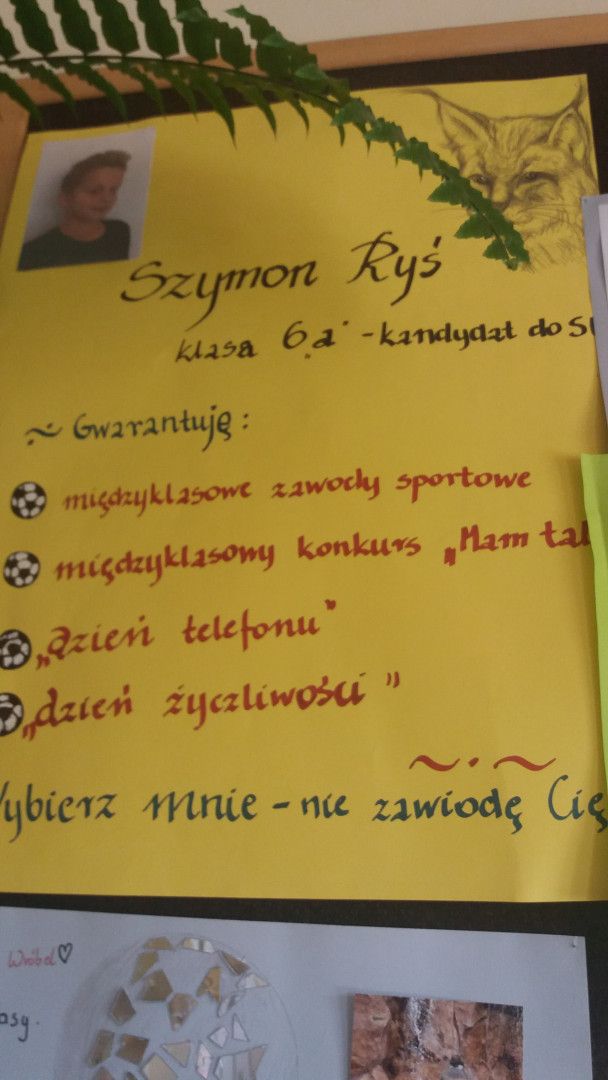 Szymon Ryś
klasa 6„a" - kandydat do
Gwarantuję:
międzyklasowe zawody sportowe
międzyklasowy konkurs „Mam
„dzień telefonu"
„dzień życzliwości"
Wybierz mnie - nie zawiodę Cię
Wróbel